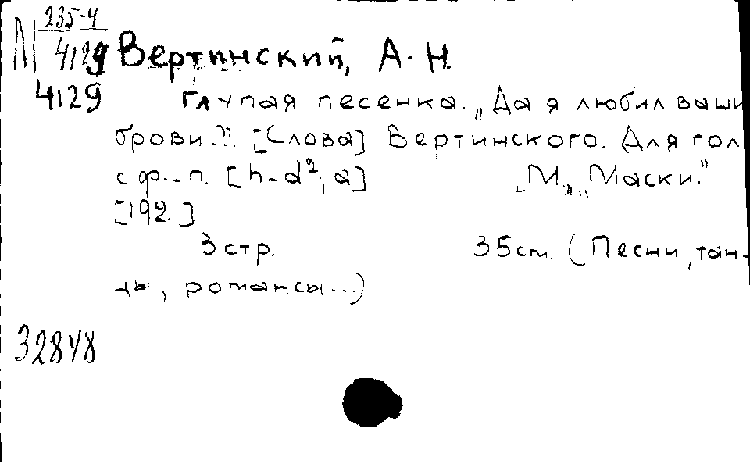 М 235-4
4129 Вертинский, А. Н.
4129 Глупая песенка. „Да я любил ваши
брови..." [Слова] Вертинского. Для гол.
с ф.-п. [h-d², a] „М", „Маски."
[192 ]
3 стр. 35 см. (Песни, тан-
цы, романсы...)
32848